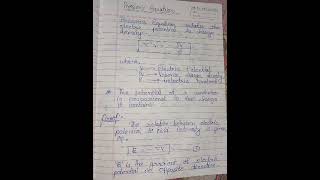 Poisson's Equation
Poisson's Equation relates the
electric potential to charge
density.
where,
V → Electric Potential
→ Volume charge density
→ electric
* The potential of a conductor
is proportional to the charge
it contains.
Proof:-
The relation between electric
potential & field intensity is given
by,
E = -∇V
E is the gradient of electric
potential in opposite direction